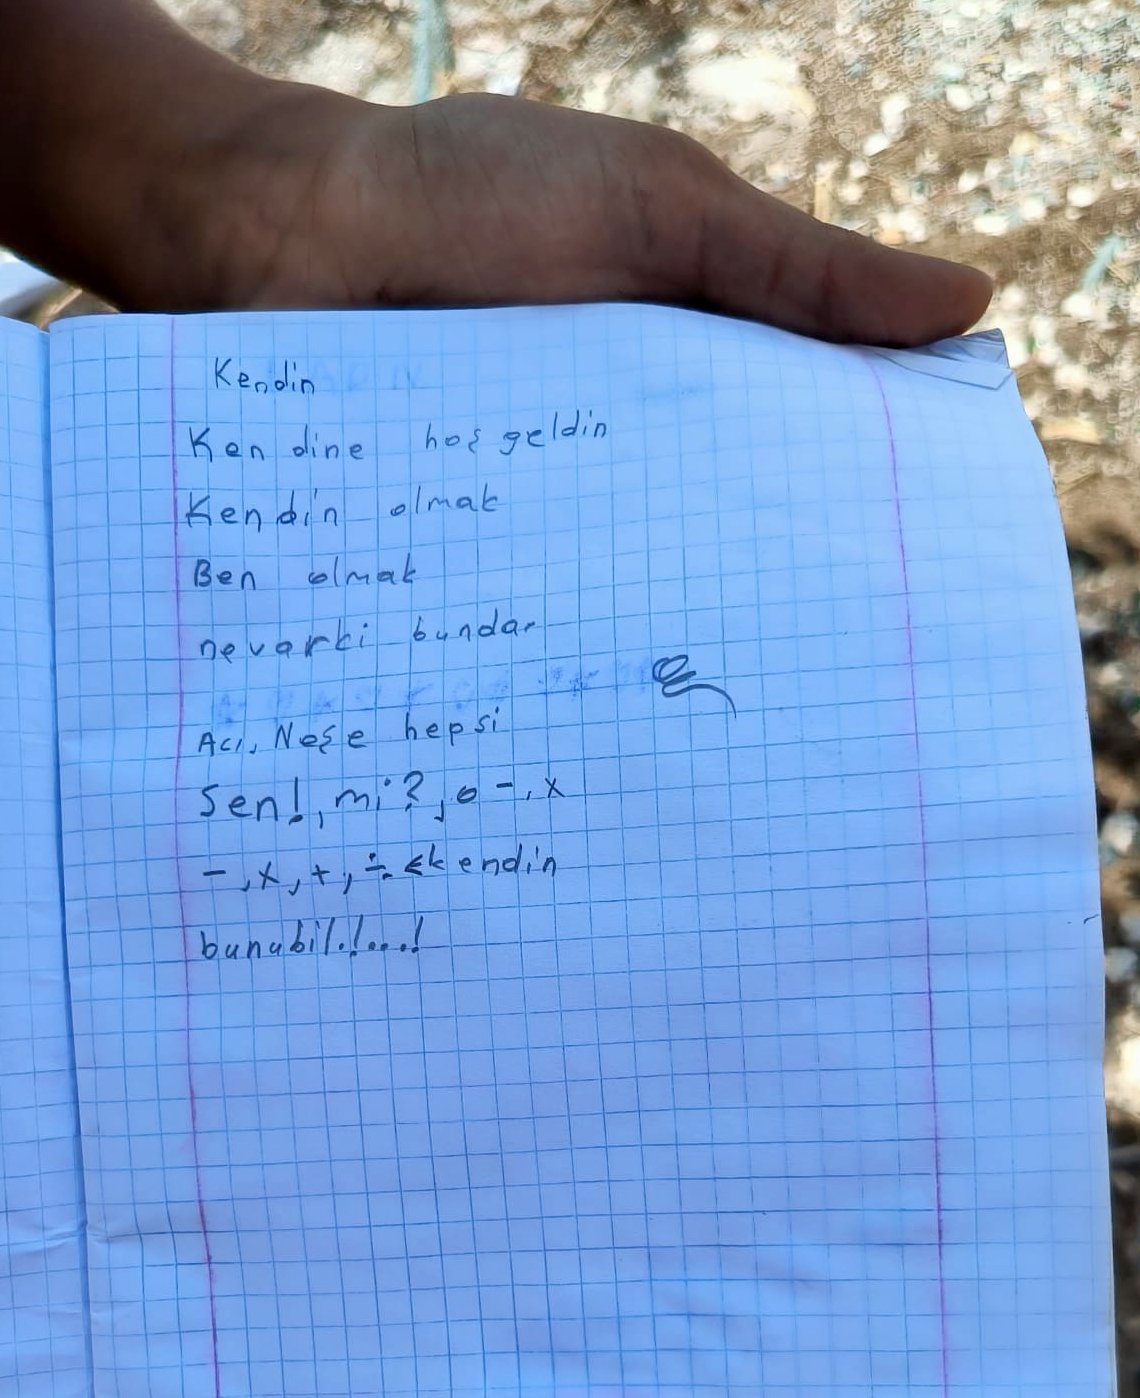 Kendin
Ken dine hoş geldin
Kendin olmak
Ben olmak
nevarki bundan
Acı, Neşe hepsi
Sen!, mi?, o -, x
-, x, +, ÷. <kendin
bunubil.!...!